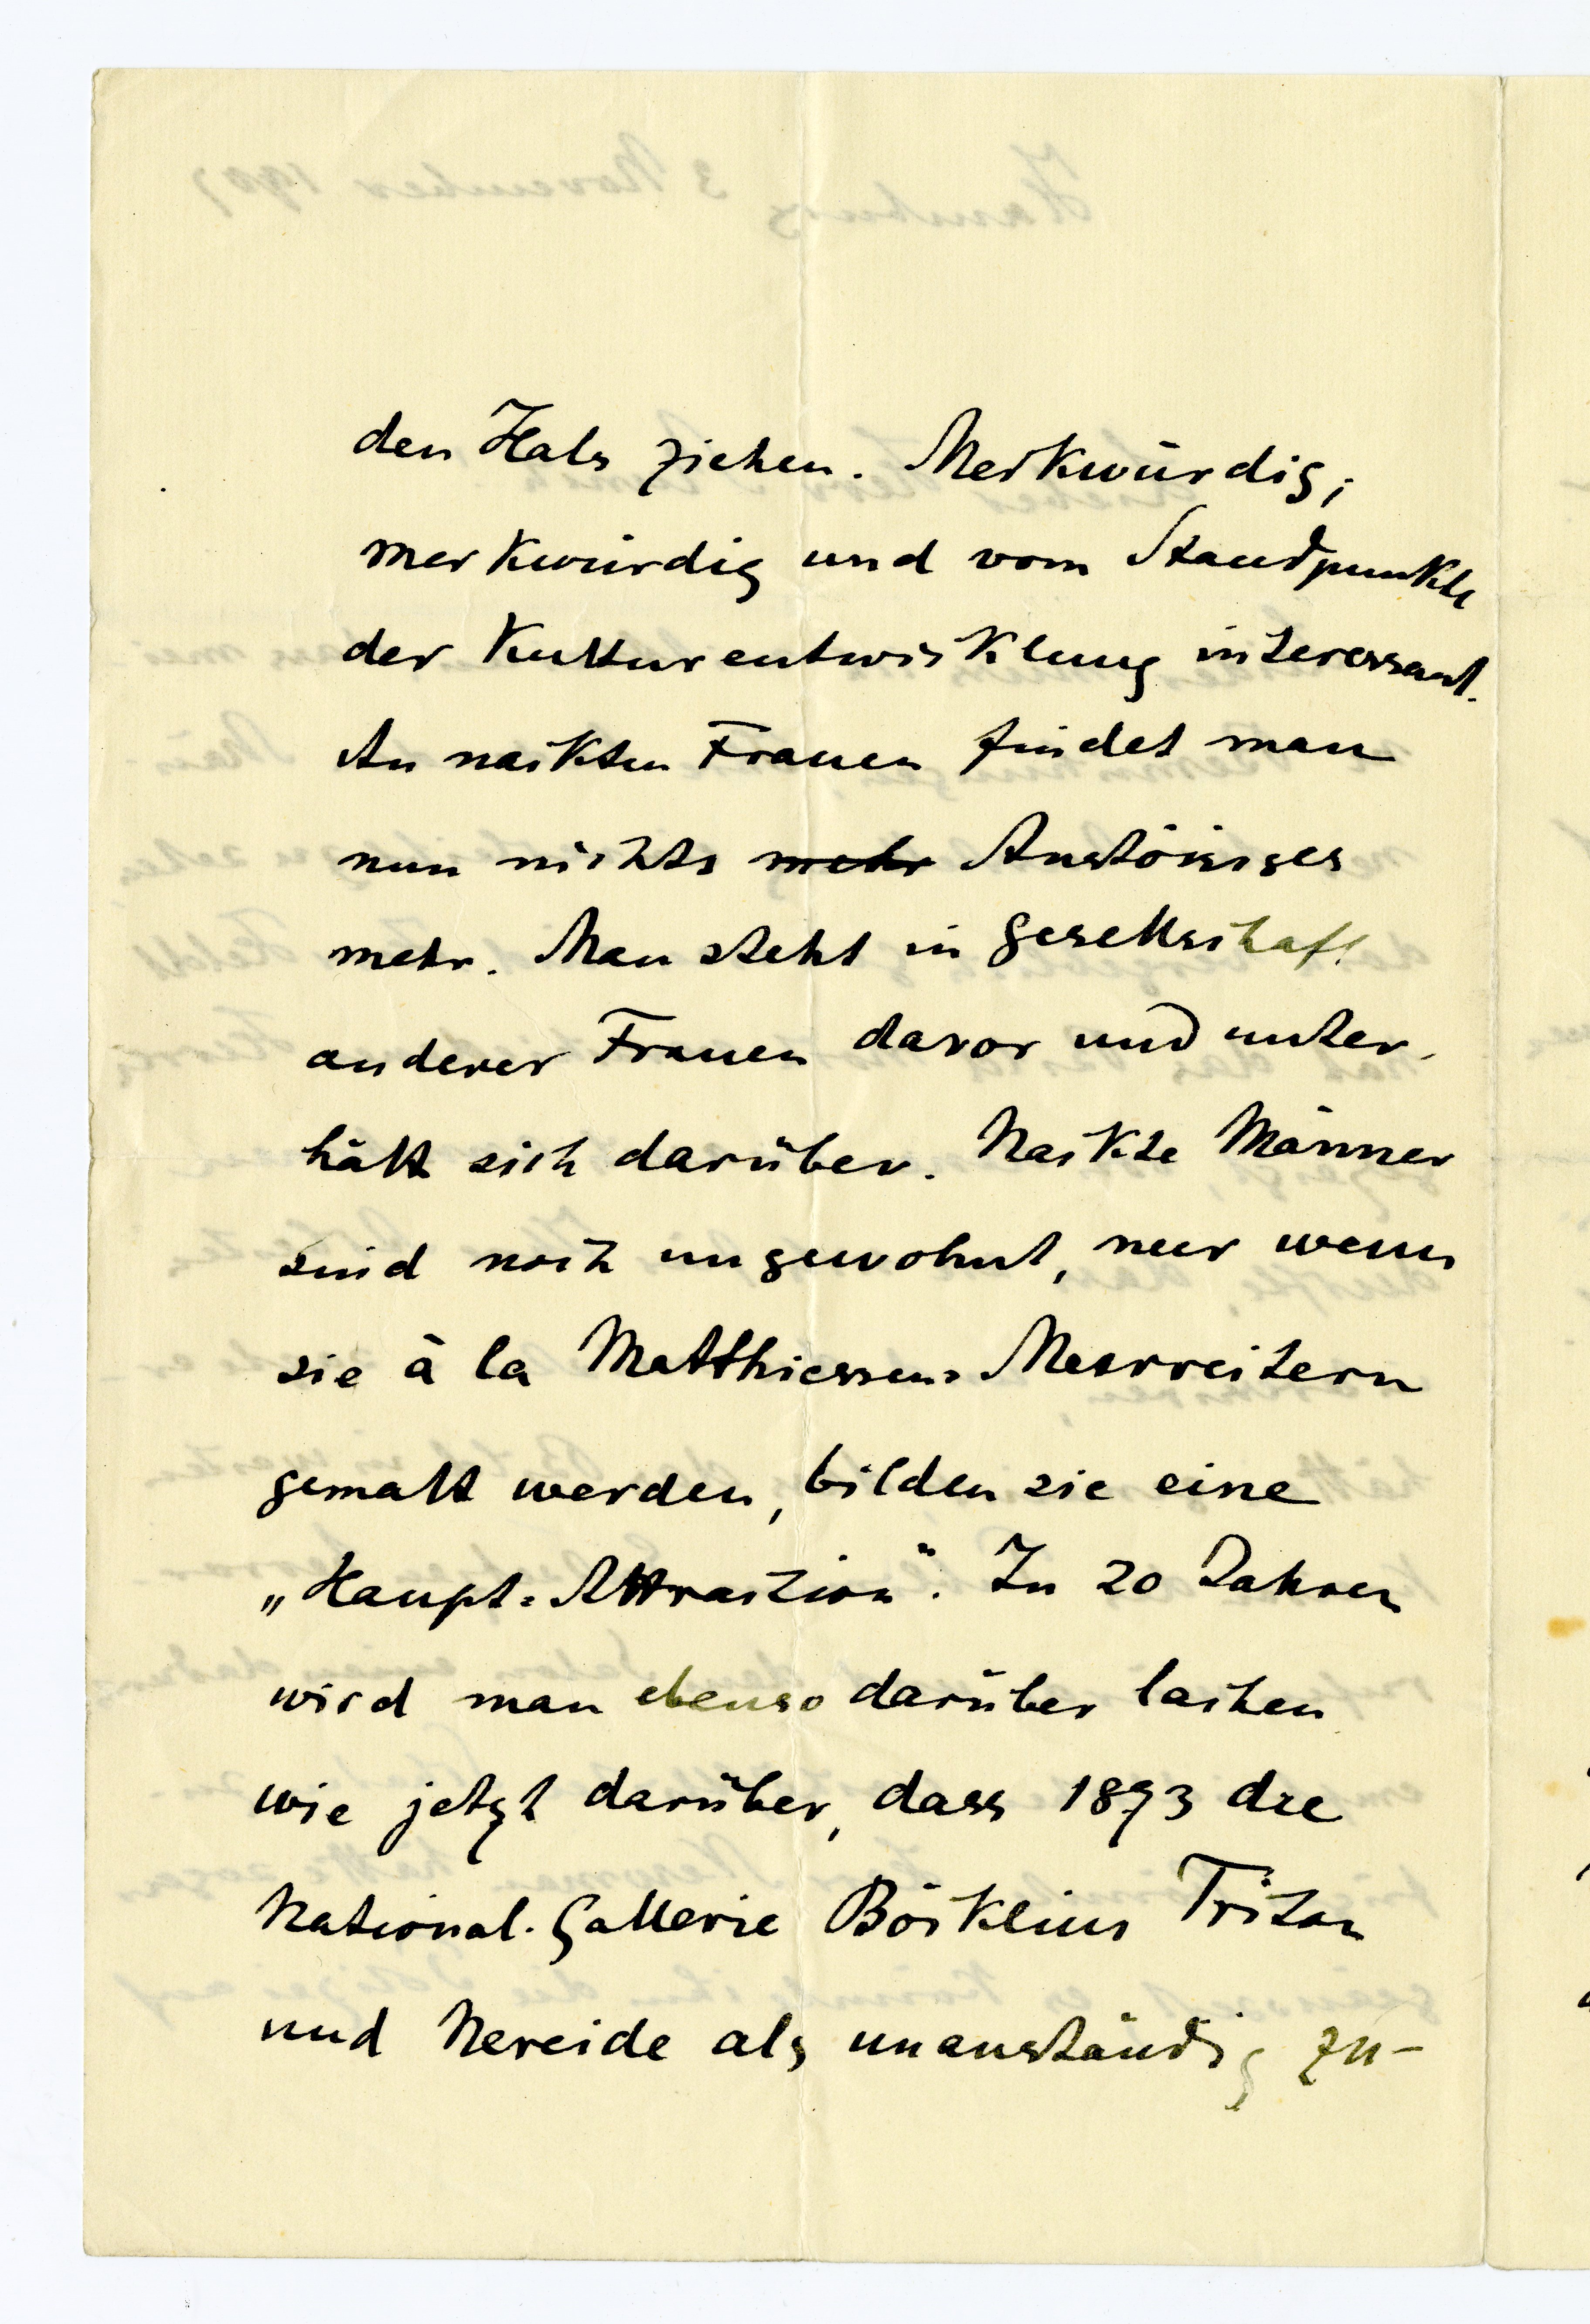 den Hals ziehen. Merkwürdig,
merkwürdig und vom Standpunkte
der Kulturentwicklung interessant.
An nackten Frauen findet man
nun nichts mehr Anstössiges
mehr. Man steht in Gesellschaft
anderer Frauen davor und unter-
hält sich darüber. Nackte Männer
sind noch ungewohnt, nur wenn
sie à la Matthiessens Meerreitern
gemalt werden, bilden sie eine
„Haupt=Attraction“. In 20 Jahren
wird man ebenso darüber lachen
wie jetzt darüber, dass 1893 die
National-Gallerie Böcklins Triton
und Nereide als unanständig zu-